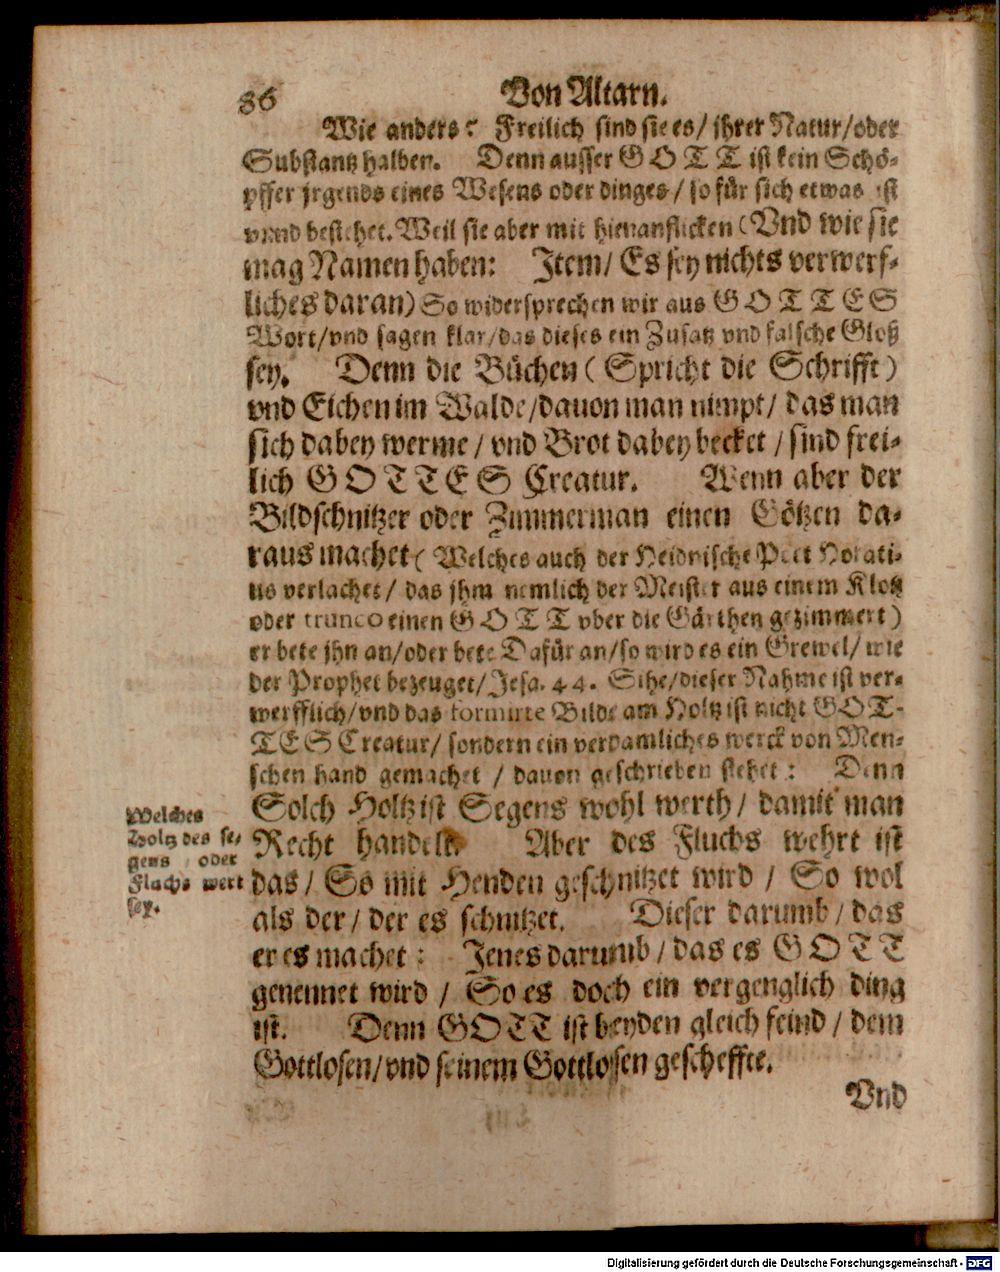 86
Von Altarn.
Wie anders? Freilich sind sie es/ jhrer Natur/oder
Substantz halben. Denn ausser GOTT ist kein Schö-
pffer jrgends eines Wesens oder dinges/ so für sich etwas ist
vnnd bestehet. Weil sie aber mit hienanflicken (Vnd wie sie
mag Namen haben: Item/ Es sey nichts verwerf-
liches daran) So widersprechen wir aus GOTTES
Wort/vnd sagen klar/das dieses ein Zusatz vnd falsche Gloß
sey. Denn die Büchen (Spricht die Schrifft)
vnd Eichen im Walde/dauon man nimpt/ das man
sich dabey werme/ vnd Brot dabey becket/ sind frei-
lich GOTTES Creatur. Wenn aber der
Bildschnitzer oder Zimmerman einen Götzen da-
raus machet (Welches auch der Heidnische Poet Horati-
us verlachet/ das jhm nemlich der Meister aus einem Klotz
oder trunco einen GOTT vber die Gärthen gezimmert)
er bete jhn an/oder bete Dafür an/so wird es ein Grewel/ wie
der Prophet bezeuget/Jesa. 44. Sihe/dieser Nahme ist ver-
werfflich/vnd das formirte Bilde am Holtz ist nicht GOT-
TES Creatur/ sondern ein verdamliches werck von Men-
schen hand gemachet/ dauon geschrieben stehet: Denn
Solch Holtz ist Segens wohl werth/ damit man
Recht handelt. Aber des Fluchs wehrt ist
das/ So mit Henden geschnitzet wird/ So wol
als der/ der es schnitzet. Dieser darumb/ das
er es machet: Jenes darumb/ das es GOTT
genennet wird/ So es doch ein vergenglich ding
ist. Denn GOTT ist beyden gleich feind/ dem
Gottlosen/vnd seinem Gottlosen gescheffte.
Vnd
Welches
Holtz des se-
gens oder
Fluchs wert
sey.
Digitalisierung gefördert durch die Deutsche Forschungsgemeinschaft - DFG